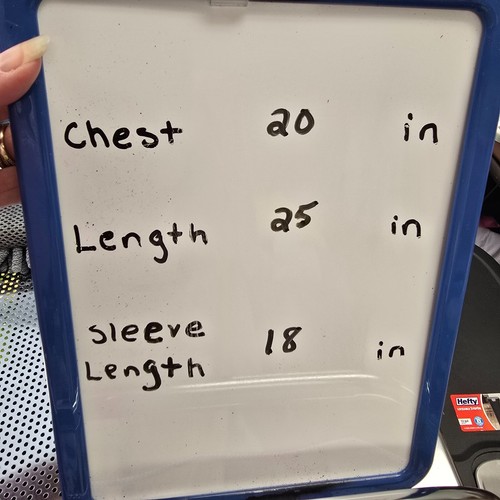 Chest 20 in
Length 25 in
sleeve
Length 18 in
Hefty